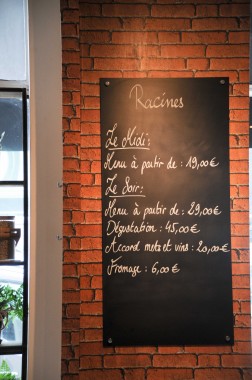 Racines
Le Midi:
Menu à partir de : 19,00€
Le Soir:
Menu à partir de : 29,00€
Dégustation : 45,00€
Accord mets et vins : 20,00€
Fromage : 6,00€